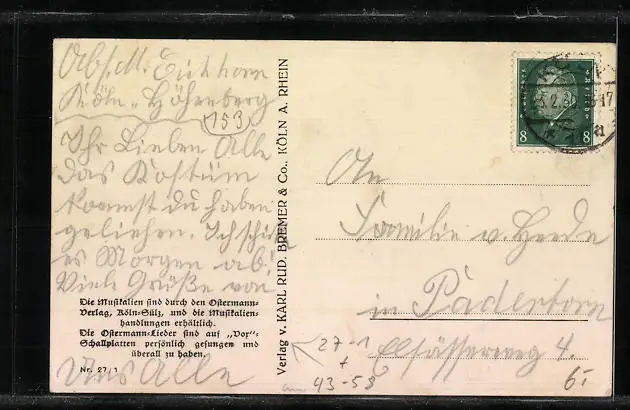 Abs. M. Eickhorn
Köln-Höhenberg
153
Ihr Lieben Alle
Das Kostüm
kannst du haben
geliehen. Ich schick
es Morgen ab!
Viele Grüße von
Die Musikalien sind durch den Ostermann-
Verlag, Köln-Sülz, und die Musikalien-
handlungen erhältlich.
Die Ostermann-Lieder sind auf „Vox“-
Schallplatten persönlich gesungen und
überall zu haben.
Nr. 27/1
uns Alle
Verlag v. KARL RUD. BREMER & Co., KÖLN A. RHEIN
8 8
An
Familie v. Heede
in Paderborn
Elsässerweg 4.
27-1
+
43-58
6,-